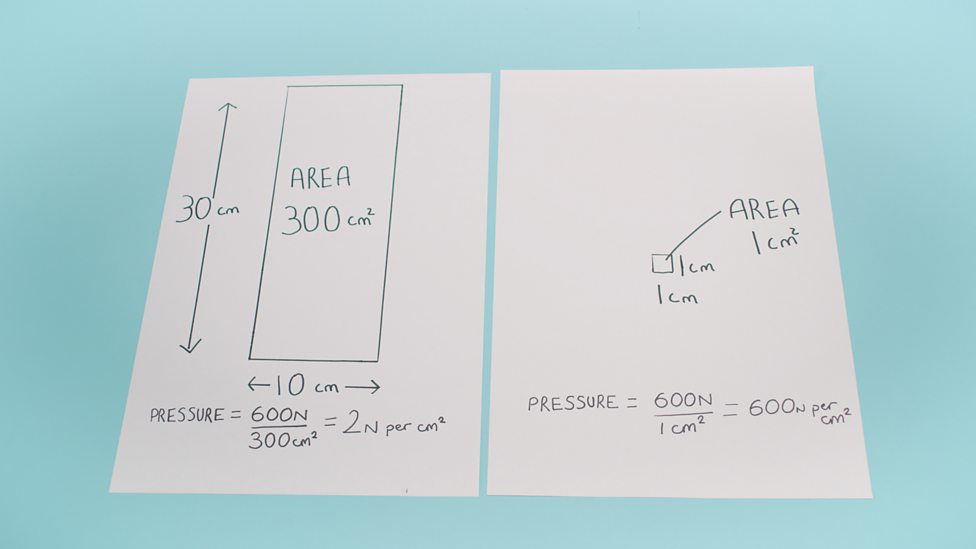 AREA
300 cm²
30 cm
←10 cm→
PRESSURE = 600N / 300cm² = 2N per cm²
AREA
1 cm²
1 cm
1 cm
PRESSURE = 600N / 1 cm² = 600N per cm²